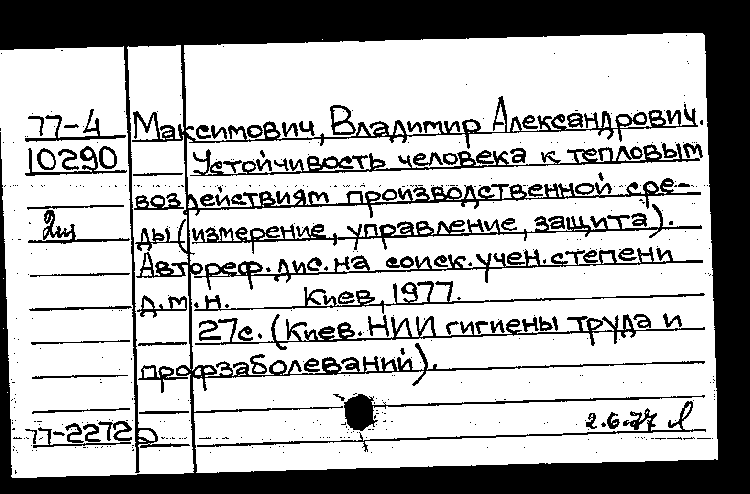 77-4 Максимович, Владимир Александрович.
10290 Устойчивость человека к тепловым
воздействиям производственной сре-
2 ды (измерение, управление, защита).
Автореф. дис. на соиск. учен. степени
д.т.н. Киев, 1977.
27с. (Киев. НИИ гигиены труда и
профзаболеваний).
77-22725 2.6.77